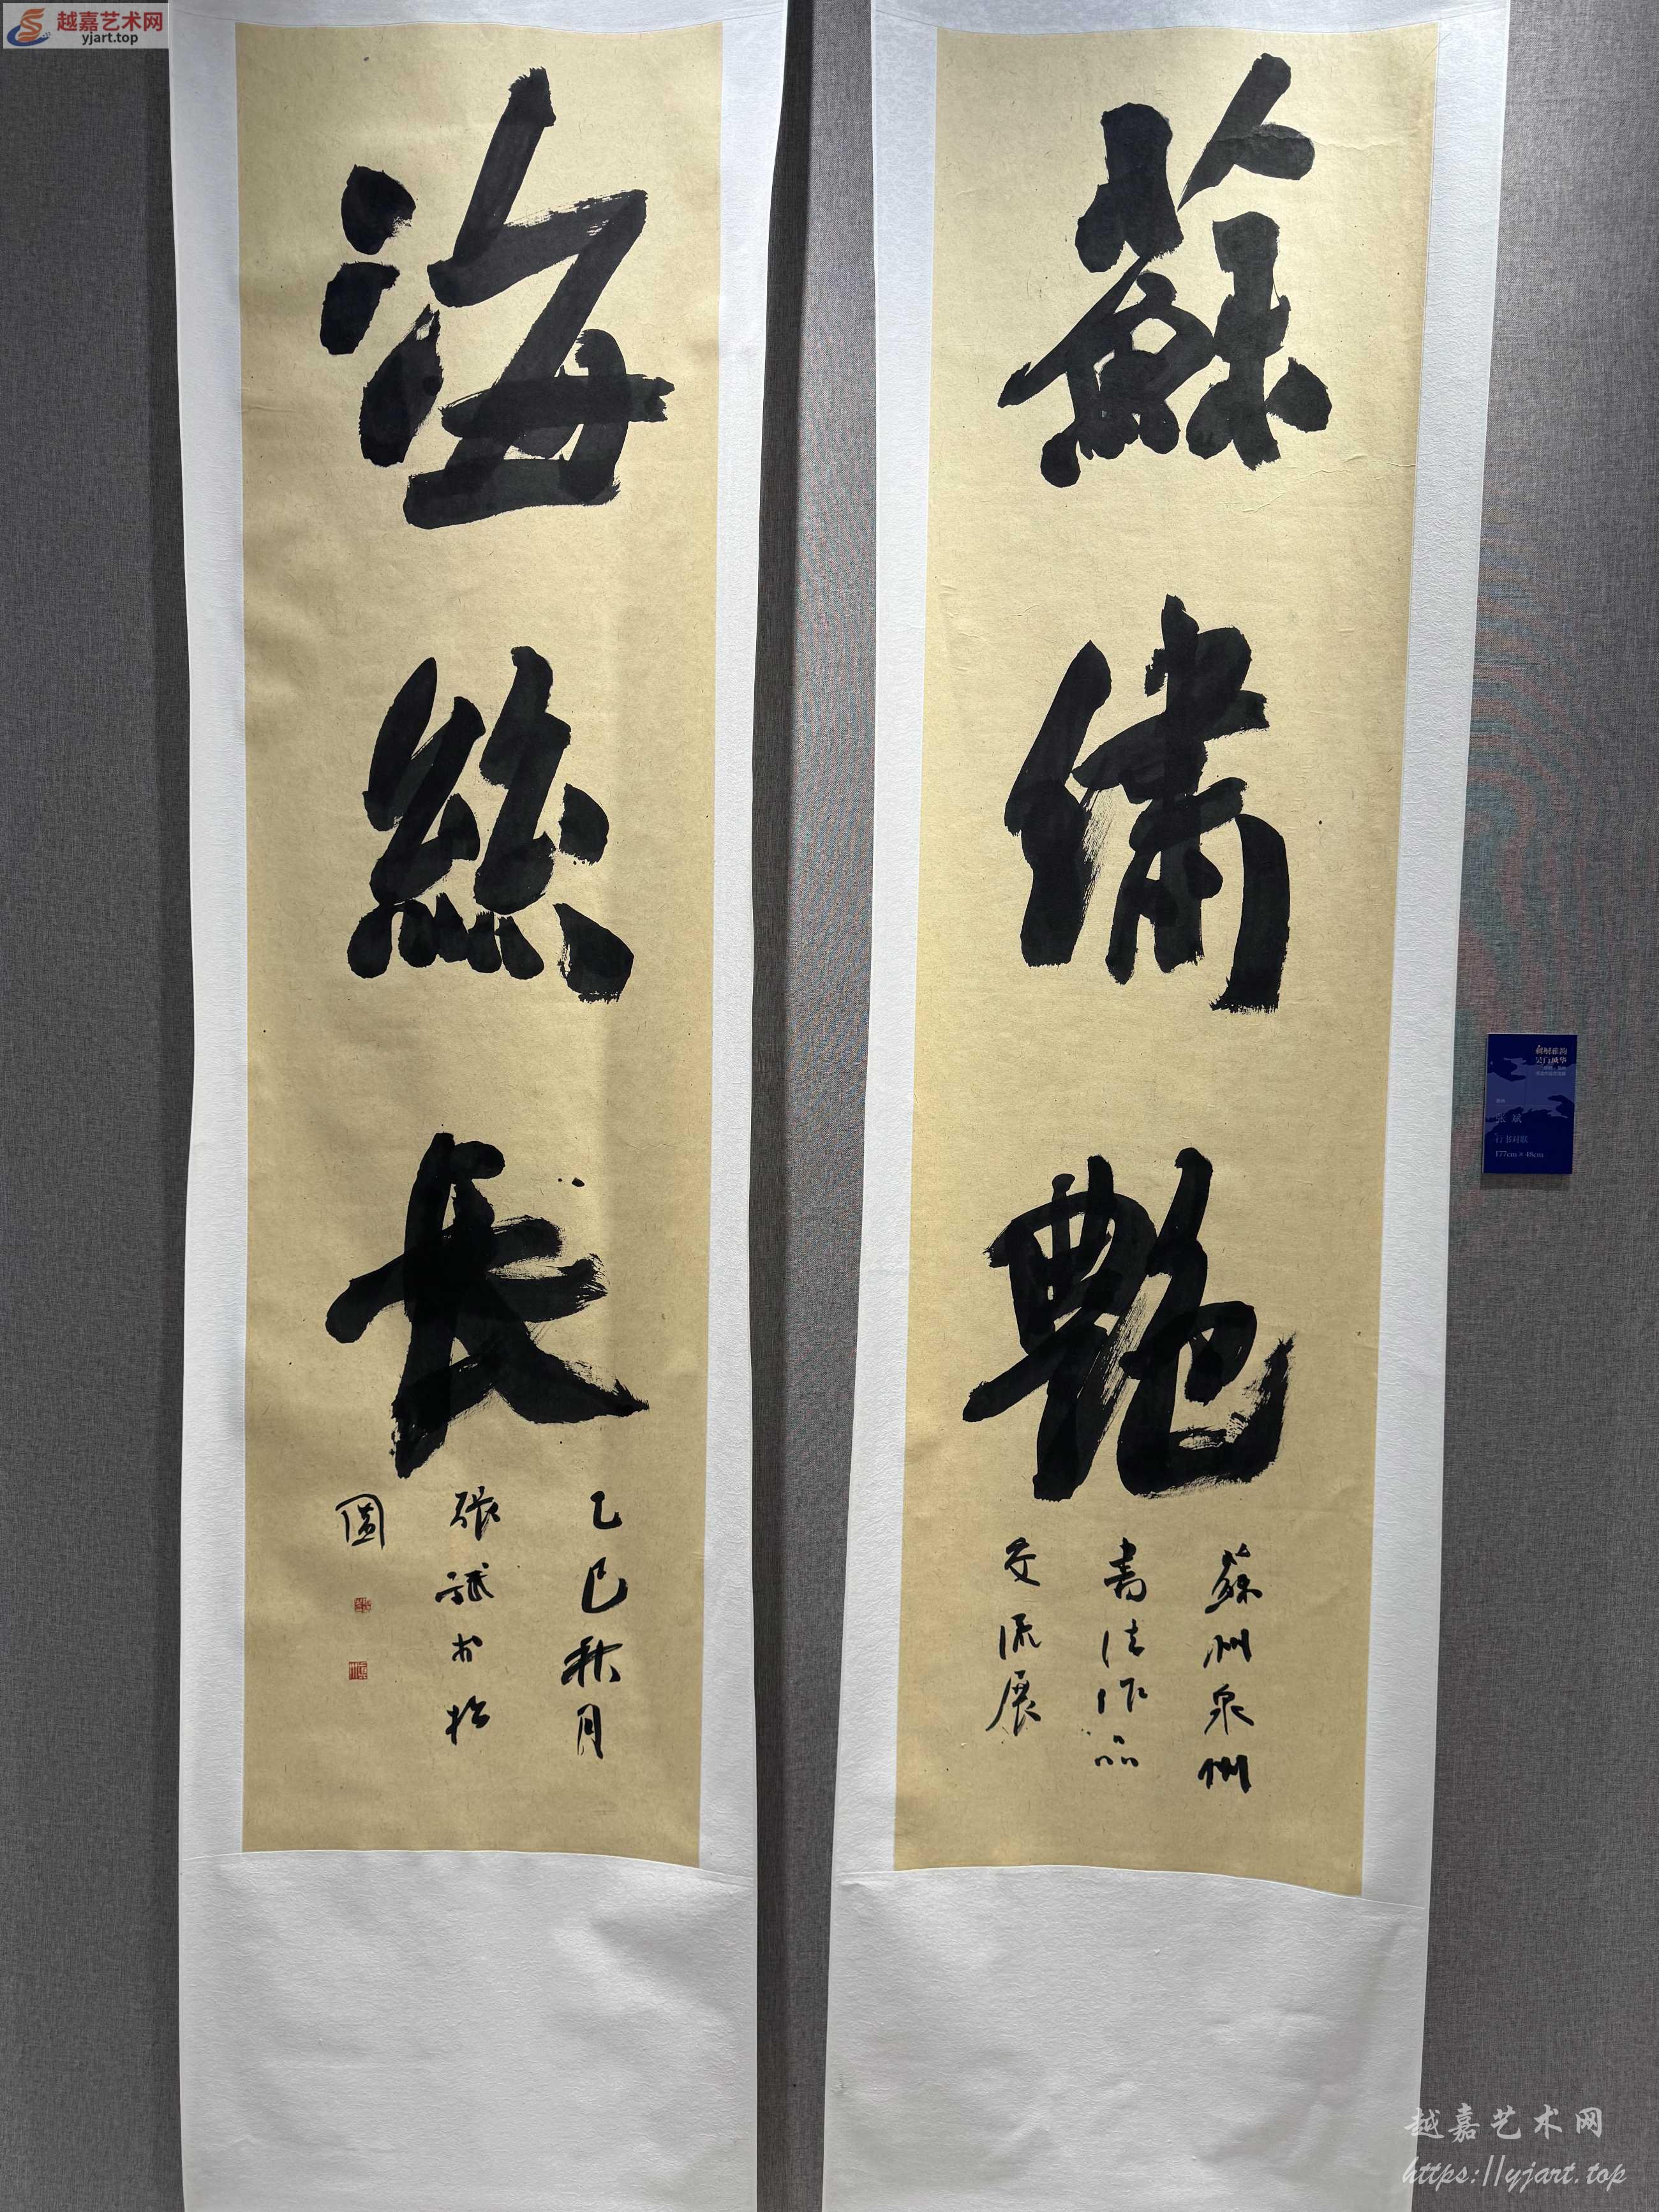 越嘉艺术网
yjart.top
蘇繡艷
蘇州泉州
書法作品
交流展
海絲長
乙巳秋月
張斌書於
圖
刺桐雅韵
吴门风华
张 斌
行书对联
177cm×48cm
越嘉艺术网
https://yjart.top